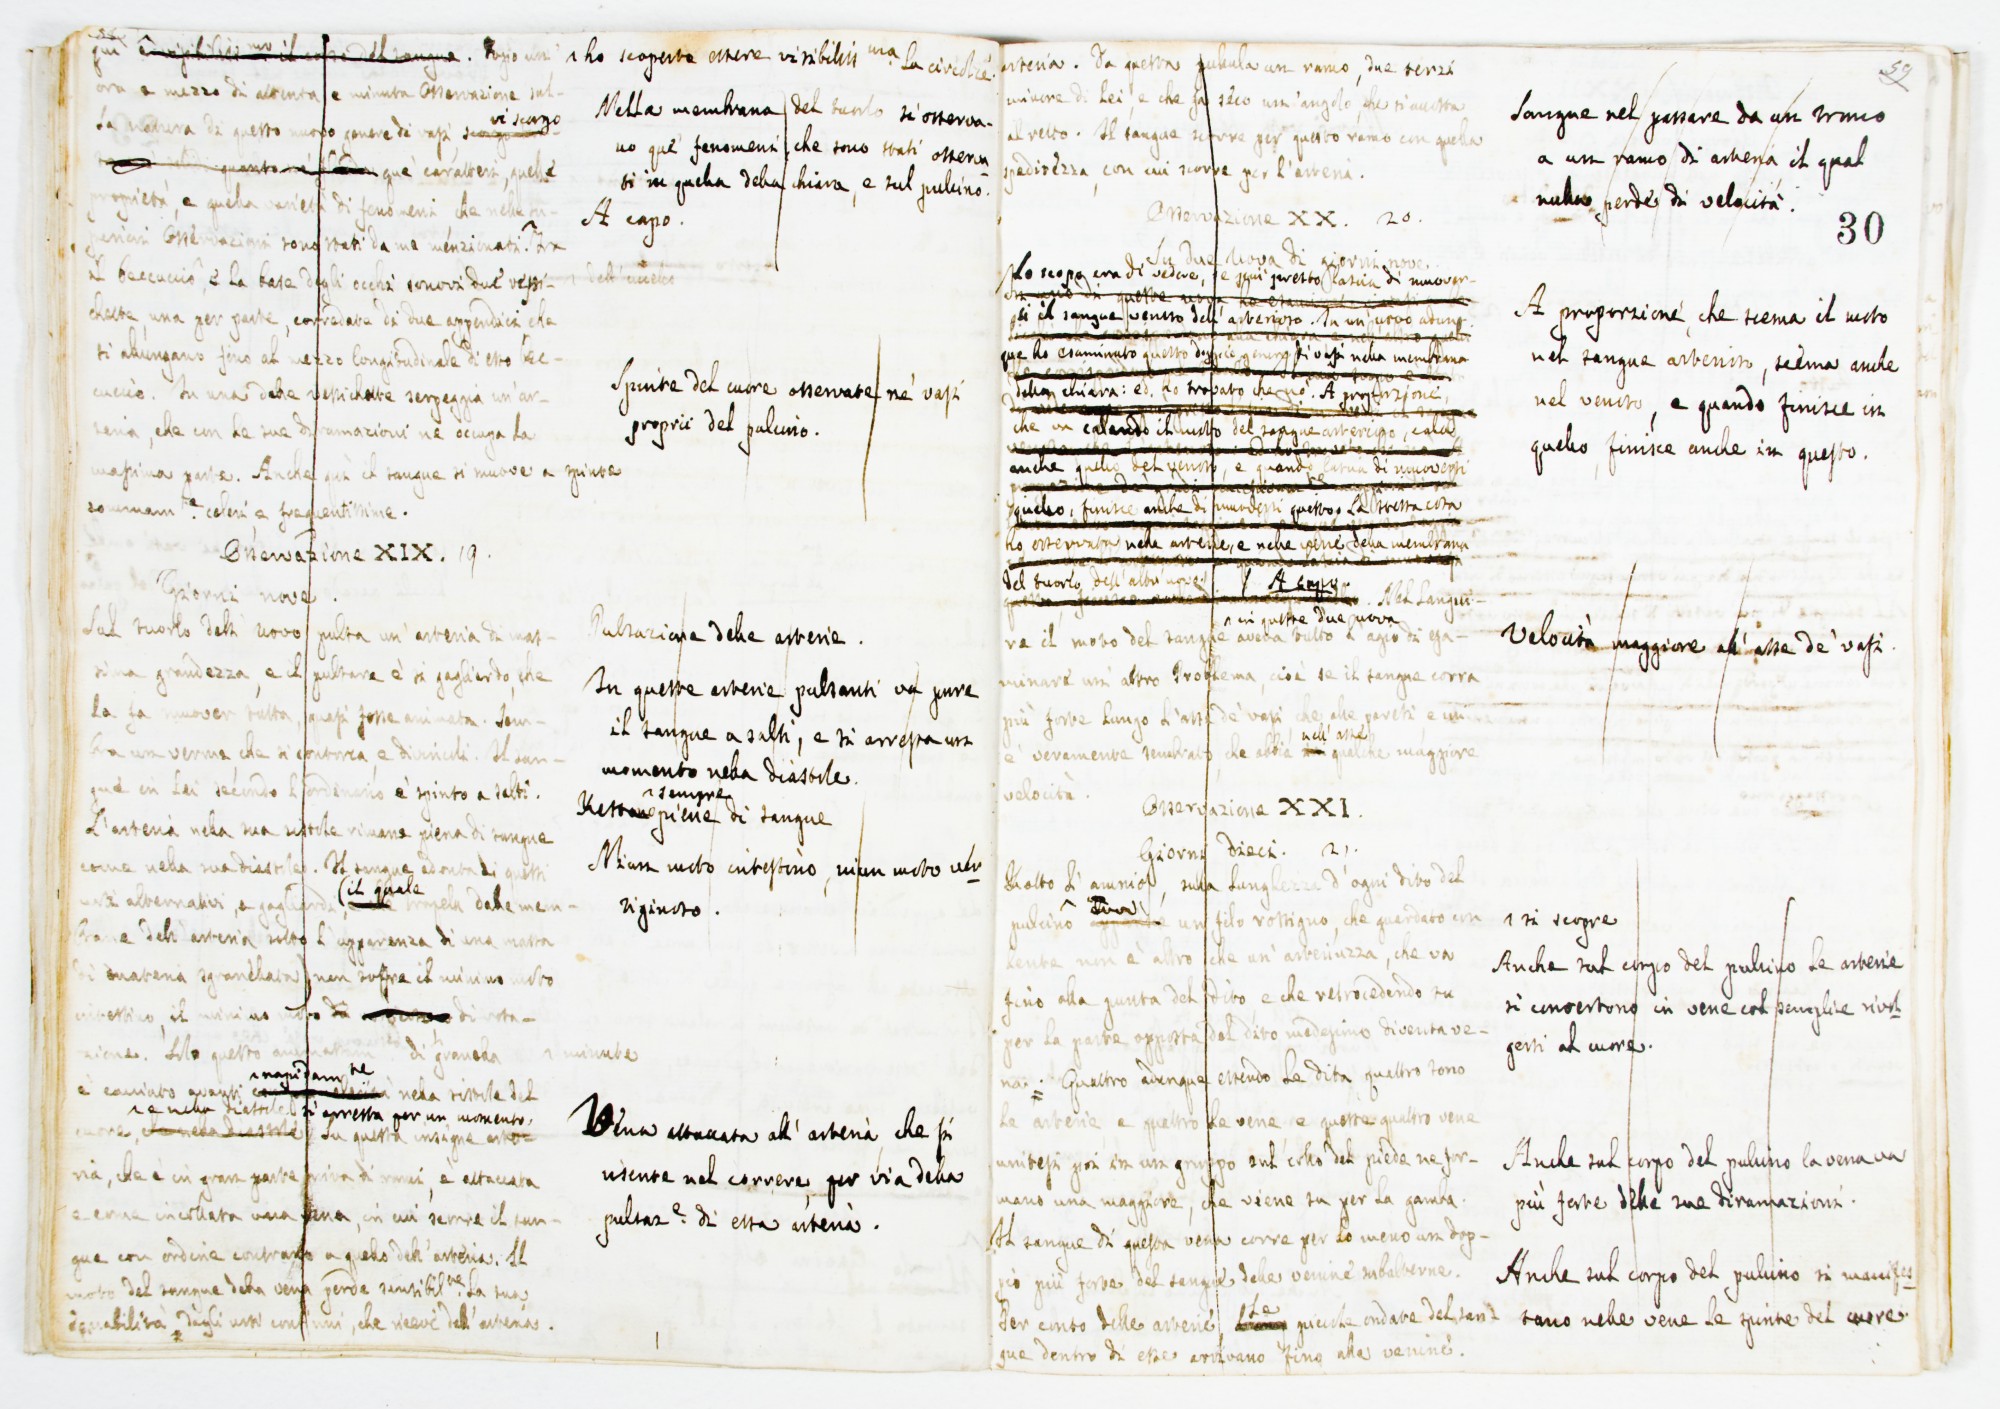 qui è visibiliss.mo il corso del sangue. Dopo un'
ora e mezzo di attenta e minuta Osservazione sul-
la natura di questo nuovo genere di vasi vi scorgo
que' caratteri, quelle
proprietà, e quella varietà di fenomeni che nelle su-
periori Osservazioni sono stati da me menzionati. Tra
il beccuccio, e la base degli occhi sonovi due vessi-
chette, una per parte, corredate di due appendici che
si allungano fino al mezzo longitudinale di esso bec-
cuccio. In una delle vessichette serpeggia un'ar-
teria, che con le sue diramazioni ne occupa la
massima parte. Anche quì il sangue si muove a spinte
sommam.te celeri, e frequentissime.
Osservazione XIX. 19.
Giorni nove.
Sul tuorlo dell'uovo pulsa un'arteria di mas-
sima grandezza, e il pulsare è sì gagliardo, che
la fa muover tutta, quasi fosse animata. Sem-
bra un verme che si contorca, e divincoli. Il san-
gue in lei secondo l'ordinario è spinto a salti.
L'arteria nella sua sistole rimane piena di sangue
come nella sua diastole. Il sangue ad onta di questi
urti alternativi, e gagliardi, (il quale
trapela dalle mem-
brane dell'arteria sotto l'apparenza di una massa
di materia sgranellata) non soffre il minimo moto
intestino, il minimo moto di di rota-
zione. di granella
è cacciato avanti rapidam.te nella sistole del
e nella diastole si arresta per un momento.
cuore, che nella diastole. In questa insigne arte-
ria, che è in gran parte priva di rami, è attaccata
e come incollata una vena, in cui scorre il san-
gue con ordine contrario a quello dell'arteria. Il
moto del sangue della vena perde sensibil.te la sua
equabilità dagli urti continui, che riceve dall'arteria.
ho scoperto essere visibiliss.ma la circolaz.e
Nella membrana del tuorlo si osserva-
no que' fenomeni, che sono stati osserva
ti in quella della chiara, e sul pulcino.
A capo.
dell'uccello
Spinte del cuore osservate ne' vasi
proprii del pulcino.
Pulsazione delle arterie.
In queste arterie pulsanti va pure
il sangue a salti, e si arresta un
momento nella diastole.
sempre
Restano piene di sangue
Niun moto intestino, niun moto ver
tiginoso.
minute
Vena attaccata all'arteria che si
risente nel correre, per via della
pulsaz.e di essa arteria.
59
30
arteria. Da questa pullula un ramo, due terzi
minore di lei, e che fa seco un'angolo, che si accosta
al retto. Il sangue scorre per questo ramo con quella
speditezza, con cui scorre per l'arteria.
Osservazione XX. 20.
Su due Uova di giorni nove.
Lo scopo era di vedere, se più presto lascia di muover-
si il sangue venoso dell'arterioso. In un'uovo adun-
que ho esaminato questo doppio genere di vasi nella membrana
della chiara: ed ho trovato che no. A proporzione,
che va calando il moto del sangue arterioso, cala
anche quello del venoso, e quando lascia di muoversi
quello, finisce anche di muoversi questo. La stessa cosa
ho osservata nelle arterie, e nelle vene della membrana
del tuorlo dell'altr'uovo. A capo. Nel langui-
in queste due uova
re il moto del sangue aveva tutto l'agio di esa-
minare un altro Problema, cioè se il sangue corra
più forte lungo l'asse de' vasi che alle pareti e mi
è veramente sembrato, che abbia nell'asse qualche maggiore
velocità.
Osservazione XXI.
Giorni Dieci. 21.
Tolto l'amnio, sulla lunghezza d'ogni dito del
pulcino è un filo rossigno, che guardato con
lente non è altro che un'arteriuzza, che va
fino alla punta del dito e che retrocedendo su
per la parte opposta del dito medesimo diventa ve-
na. Quattro adunque essendo le dita quattro sono
le arterie, e quattro le vene e queste quattro vene
unitesi poi in un gruppo sul collo del piede ne for-
mano una maggiore, che viene su per la gamba.
Il sangue di questa vena corre per lo meno un dop-
pio più forte del sangue delle venine subalterne.
Per conto delle arterie, le picciole ondate del san-
gue dentro di esse arrivano fino alle venine.
Sangue nel passare da un tronco
a un ramo di arteria il qual
nulla perde di velocità.
A proporzione, che scema il moto
nel sangue arterioso, scema anche
nel venoso, e quando finisce in
quello, finisce anche in questo.
Velocità maggiore all'asse de' vasi.
si scopre
Anche sul corpo del pulcino le arterie
si convertono in vene col semplice rivol
gersi al cuore.
Anche sul corpo del pulcino la vena va
più forte delle sue diramazioni.
Anche sul corpo del pulcino si manifes
tano nelle vene le spinte del cuore.